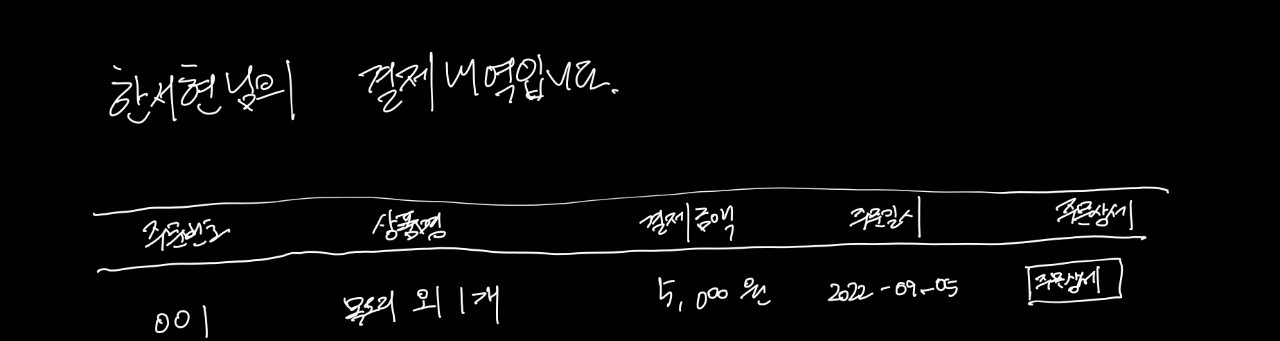 한서현님의 결제내역입니다.
주문번호 상품명 결제금액 주문일시 주문상세
001 외 1개 5,000원 2022-09-05 주문상세